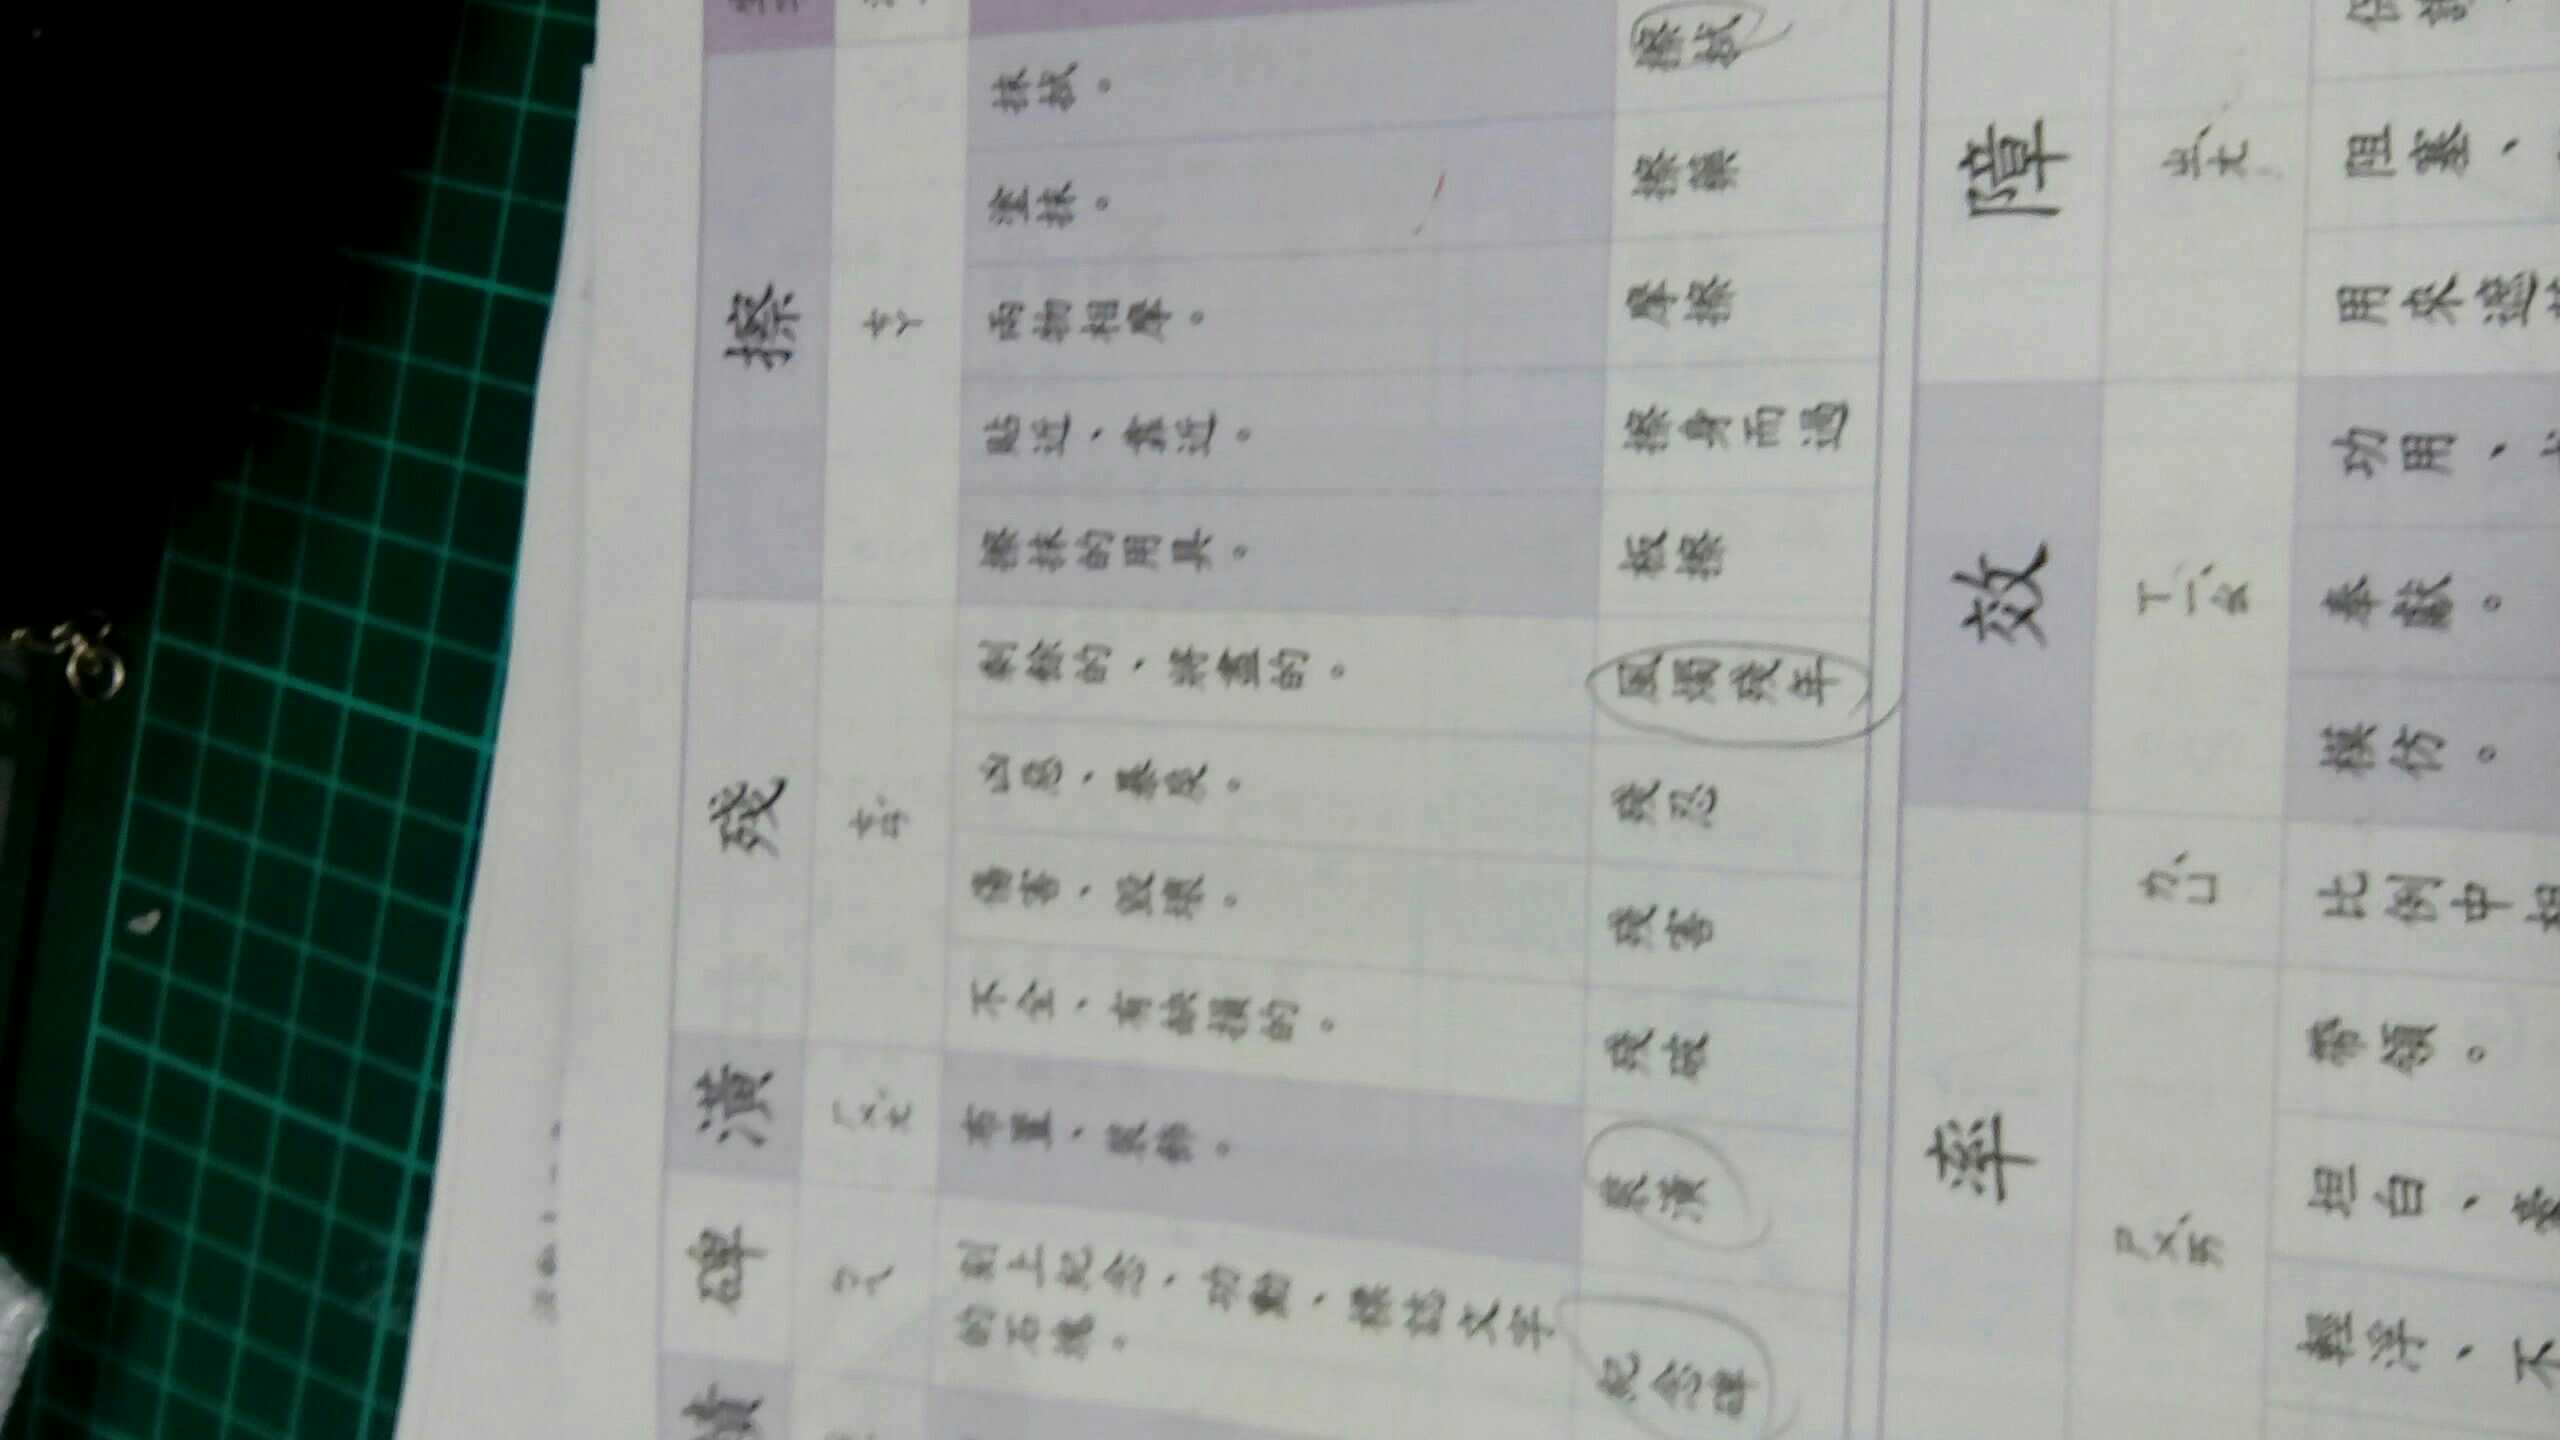 擦
ㄘㄚ
抹拭。
擦拭
塗抹。
擦藥
兩物相摩。
摩擦
貼近、靠近。
擦身而過
擦抹的用具。
板擦
殘
ㄘㄢˊ
剩餘的、將盡的。
風燭殘年
凶惡、暴戾。
殘忍
傷害、毀壞。
殘害
不全、有缺損的。
殘破
潢
ㄏㄨㄤˊ
布置、裝飾。
裝潢
碑
ㄅㄟ
刻上紀念、功勳、標誌文字
的石塊。
紀念碑
障
ㄓㄤˋ
阻塞、
用來遮
效
ㄒㄧㄠˋ
功用、
奉獻。
模仿。
率
ㄌㄩˋ
比例中相
ㄕㄨㄞˋ
帶領。
坦白、
輕浮、不